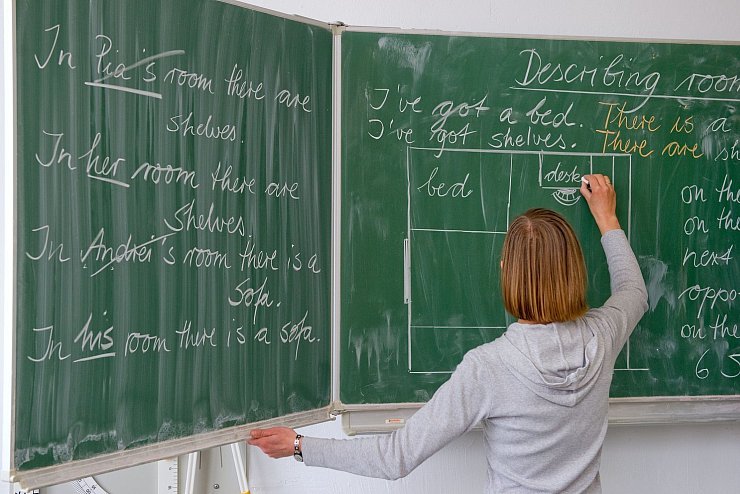 In Pia's room there are
shelves.
In her room there are
shelves.
In Andrei's room there is a
sofa.
In his room there is a sofa.
Describing room
I've got a bed. There is a
I've got shelves. There are sh
bed
desk
on the
on the
next
oppo
on the